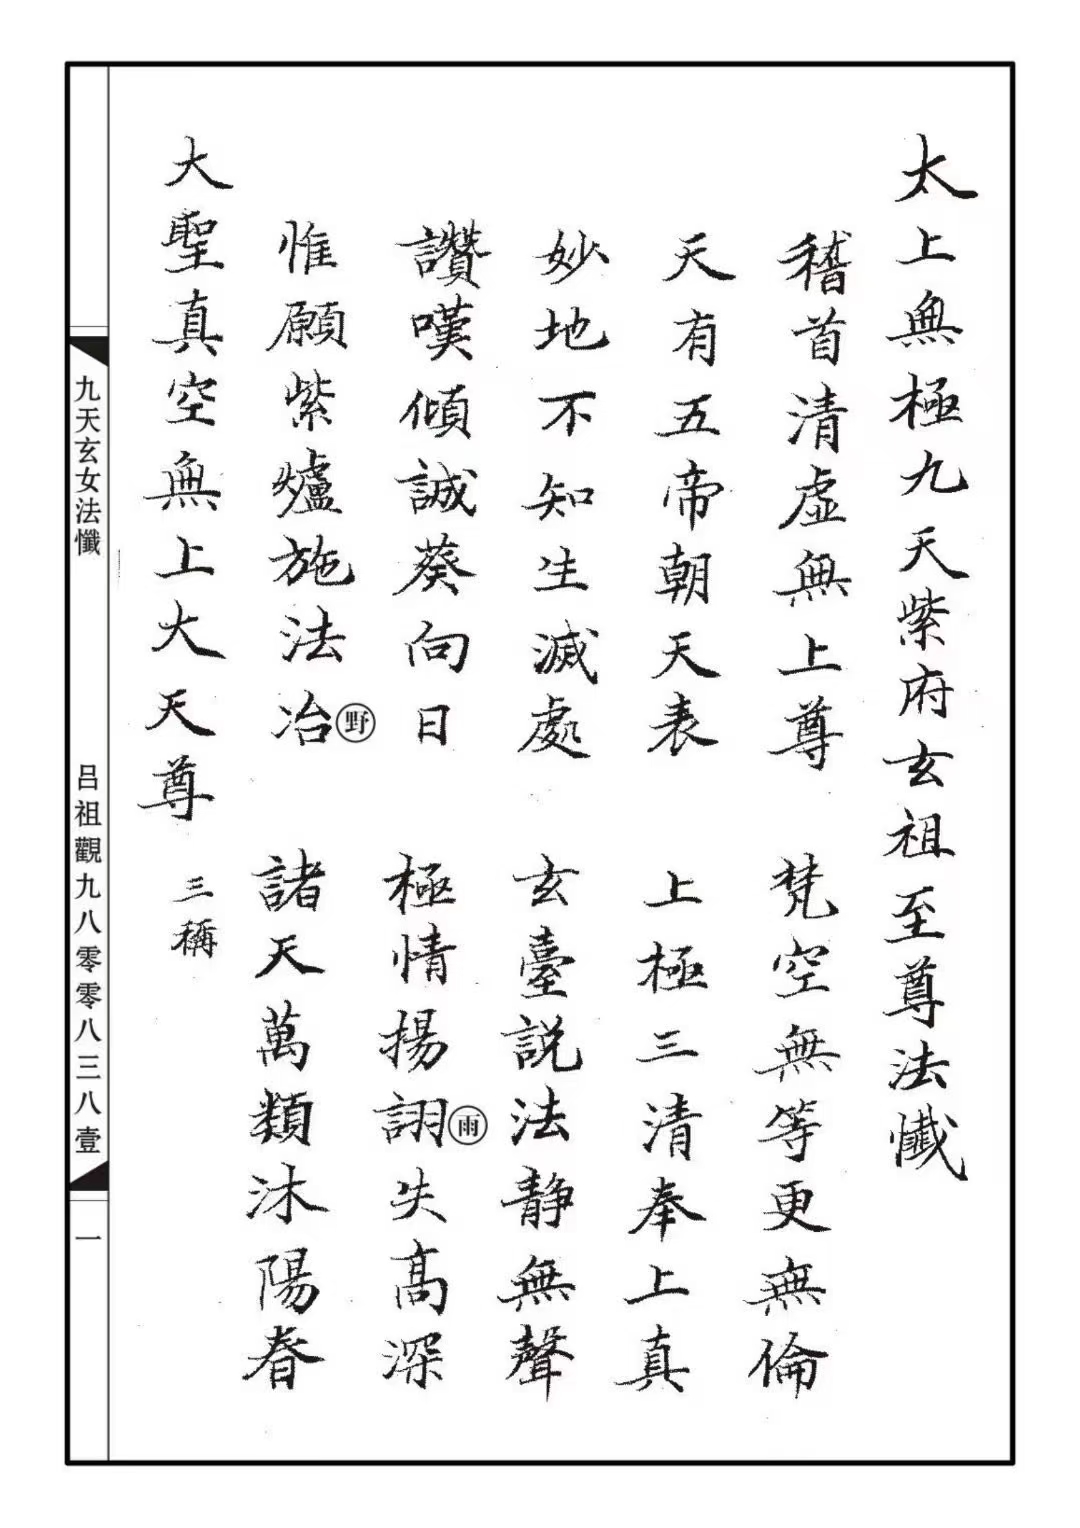 太上無極九天紫府玄祖至尊法懺
稽首清虛無上尊 梵空無等更無倫
天有五帝朝天表 上極三清奉上真
妙地不知生滅處 玄臺説法静無聲
讚嘆傾誠葵向日 極情揚詡㊟雨失高深
惟願紫爐施法冶野 諸天萬類沐陽春
大聖真空無上大天尊 三稱
九天玄女法懺 呂祖觀九八零零八三八壹 一